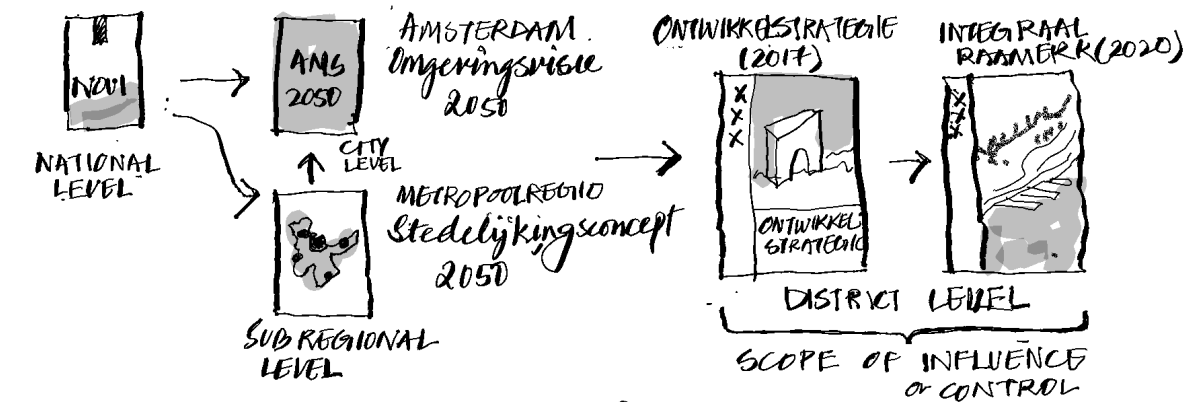 NOVI
NATIONAL
LEVEL
AMS
2050
AMSTERDAM
Omgevingsvisie
2050
CITY
LEVEL
METROPOOLREGIO
Stedelijkingsconcept
2050
SUBREGIONAL
LEVEL
ONTWIKKELSTRATEGIE
(2017)
X
X
X
ONTWIKKEL
STRATEGIE
INTEGRAAL
RAAMERK (2020)
X
X
X
DISTRICT LEVEL
SCOPE OF INFLUENCE
or CONTROL